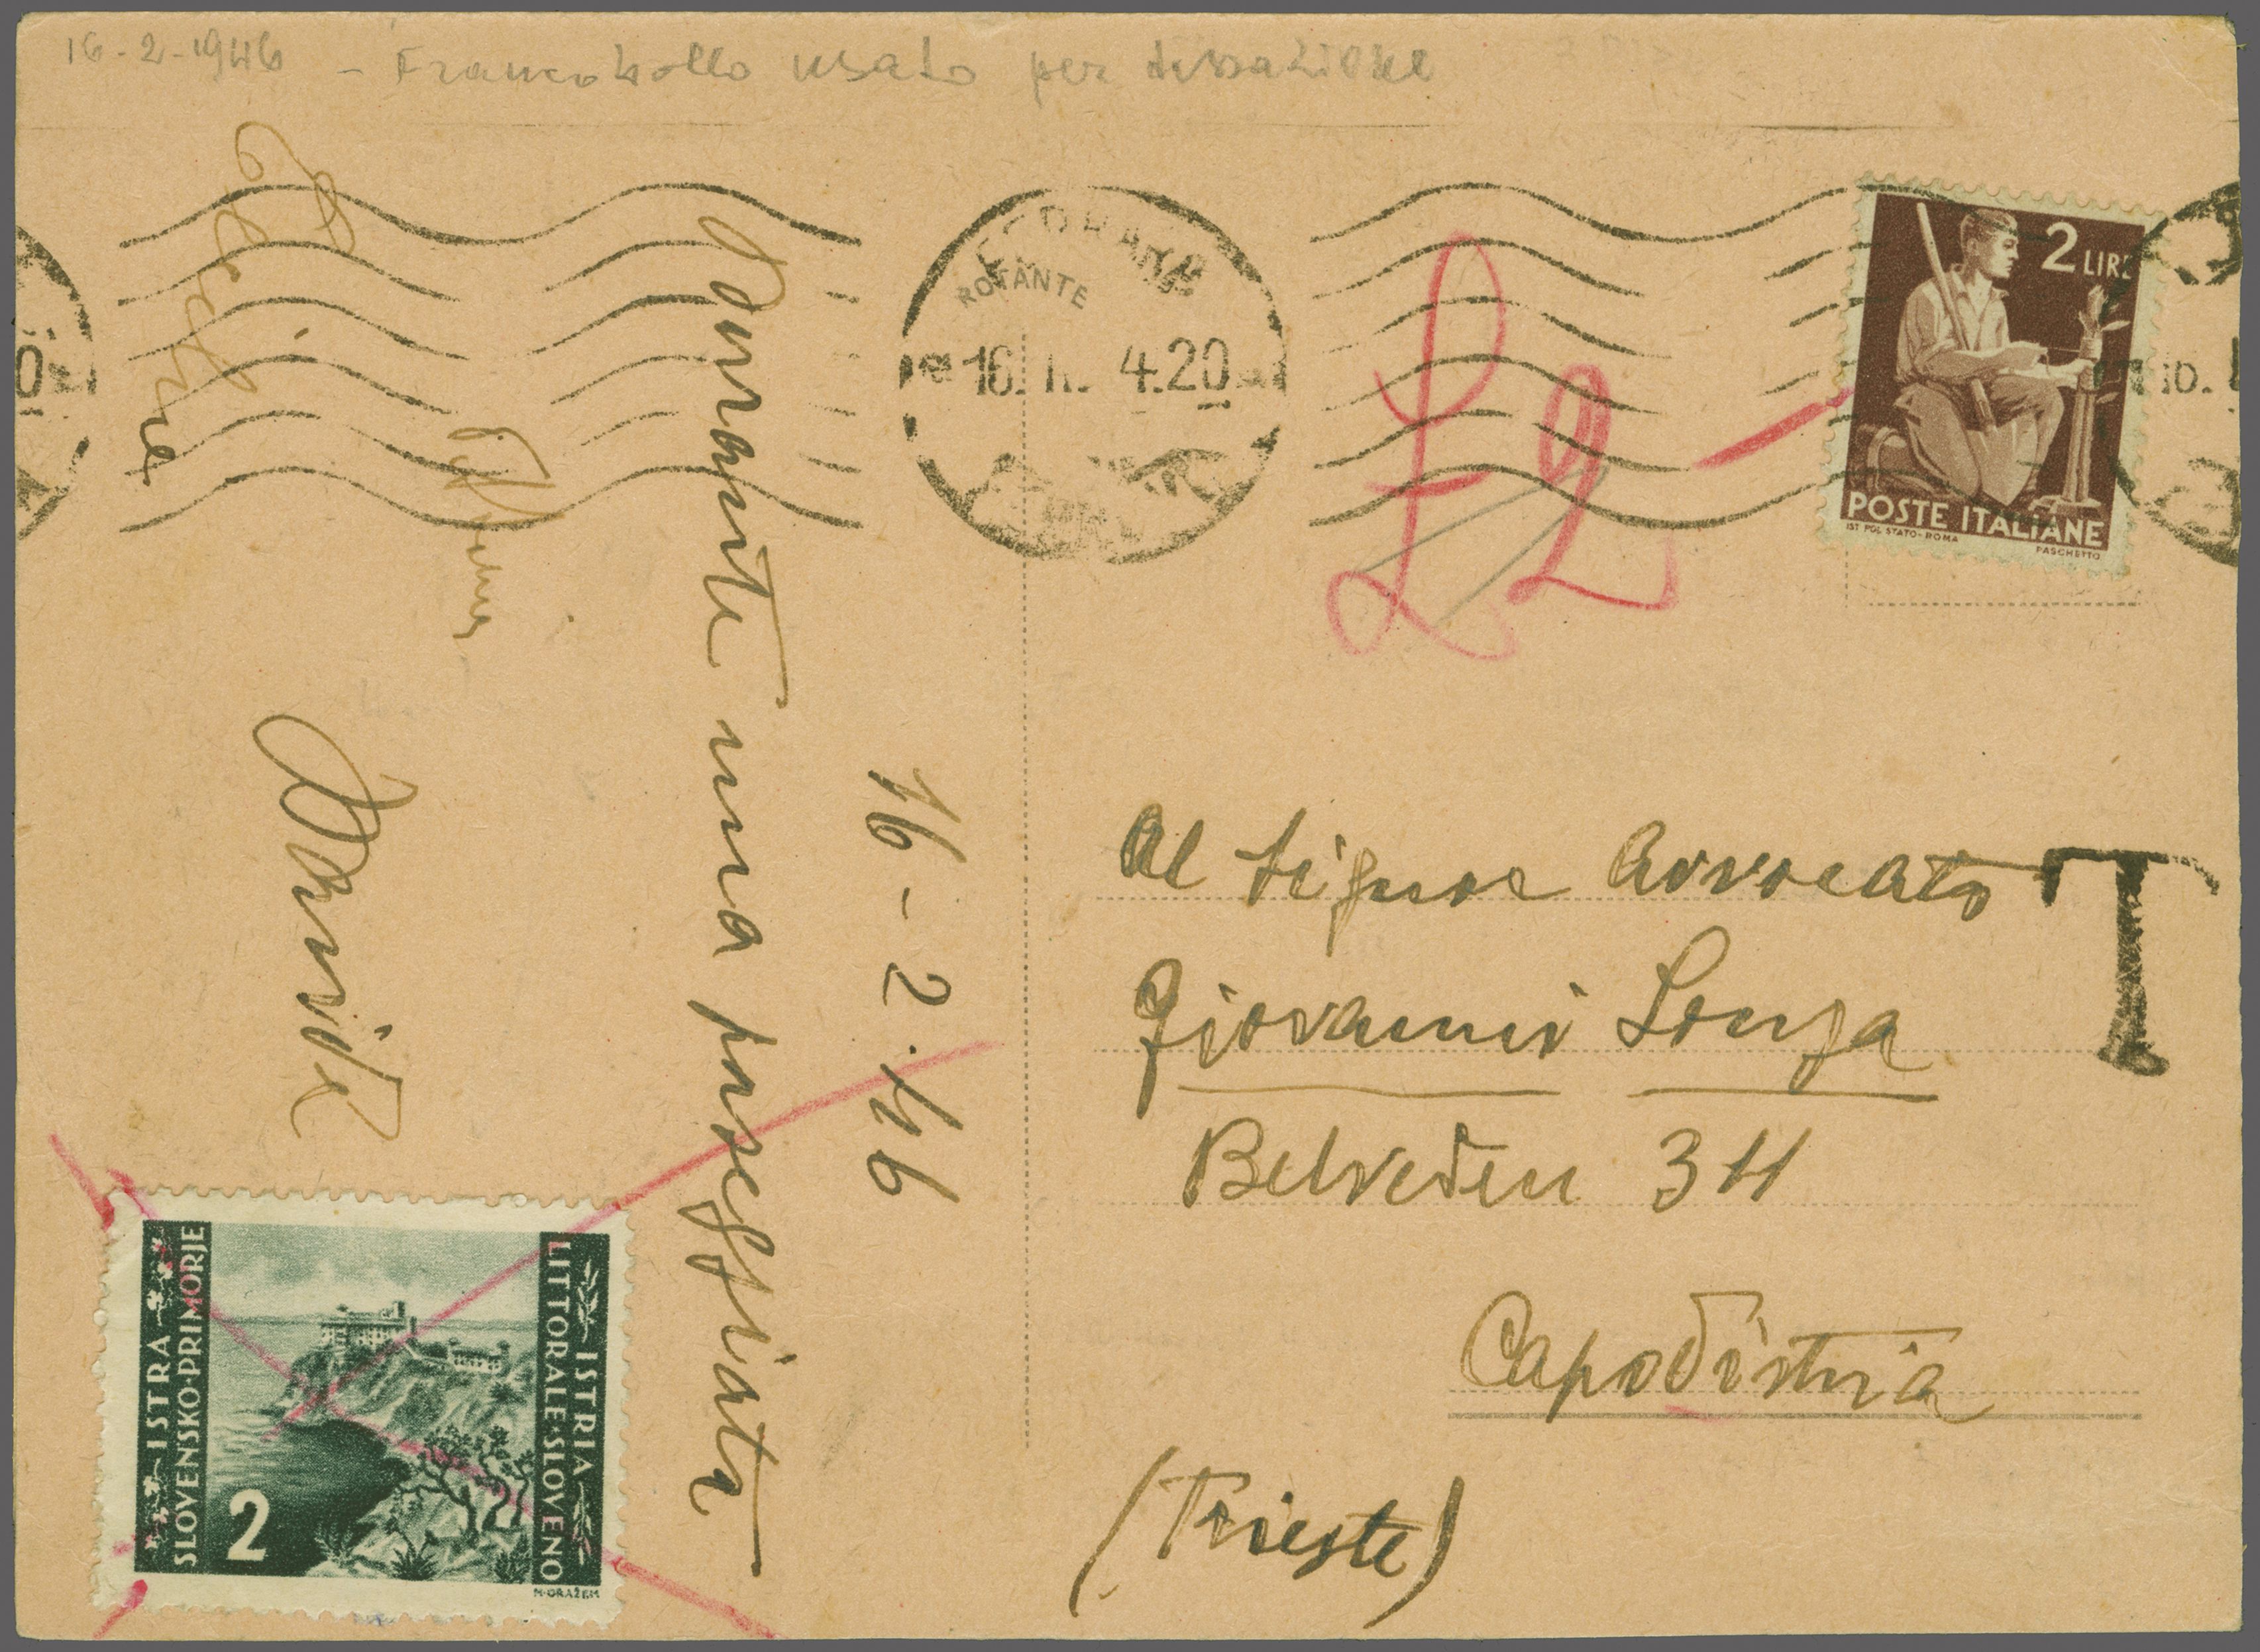 16-2-1946 - Francobollo usato per tassazione
ROTANTE
16. II. 4.20
£ 2 -
2 LIRE
POSTE ITALIANE
IST. POL. STATO-ROMA
PASCHETTO
10.
16-2.46
Durante una passeggiata
Al Signor Avvocato
T
Giovanni Lonza
Belvedere 311
Capodistria
(Trieste)
ISTRA
SLOVENSKO·PRIMORJE
2
ISTRIA
LITTORALE·SLOVENO
M·ORAŽEM